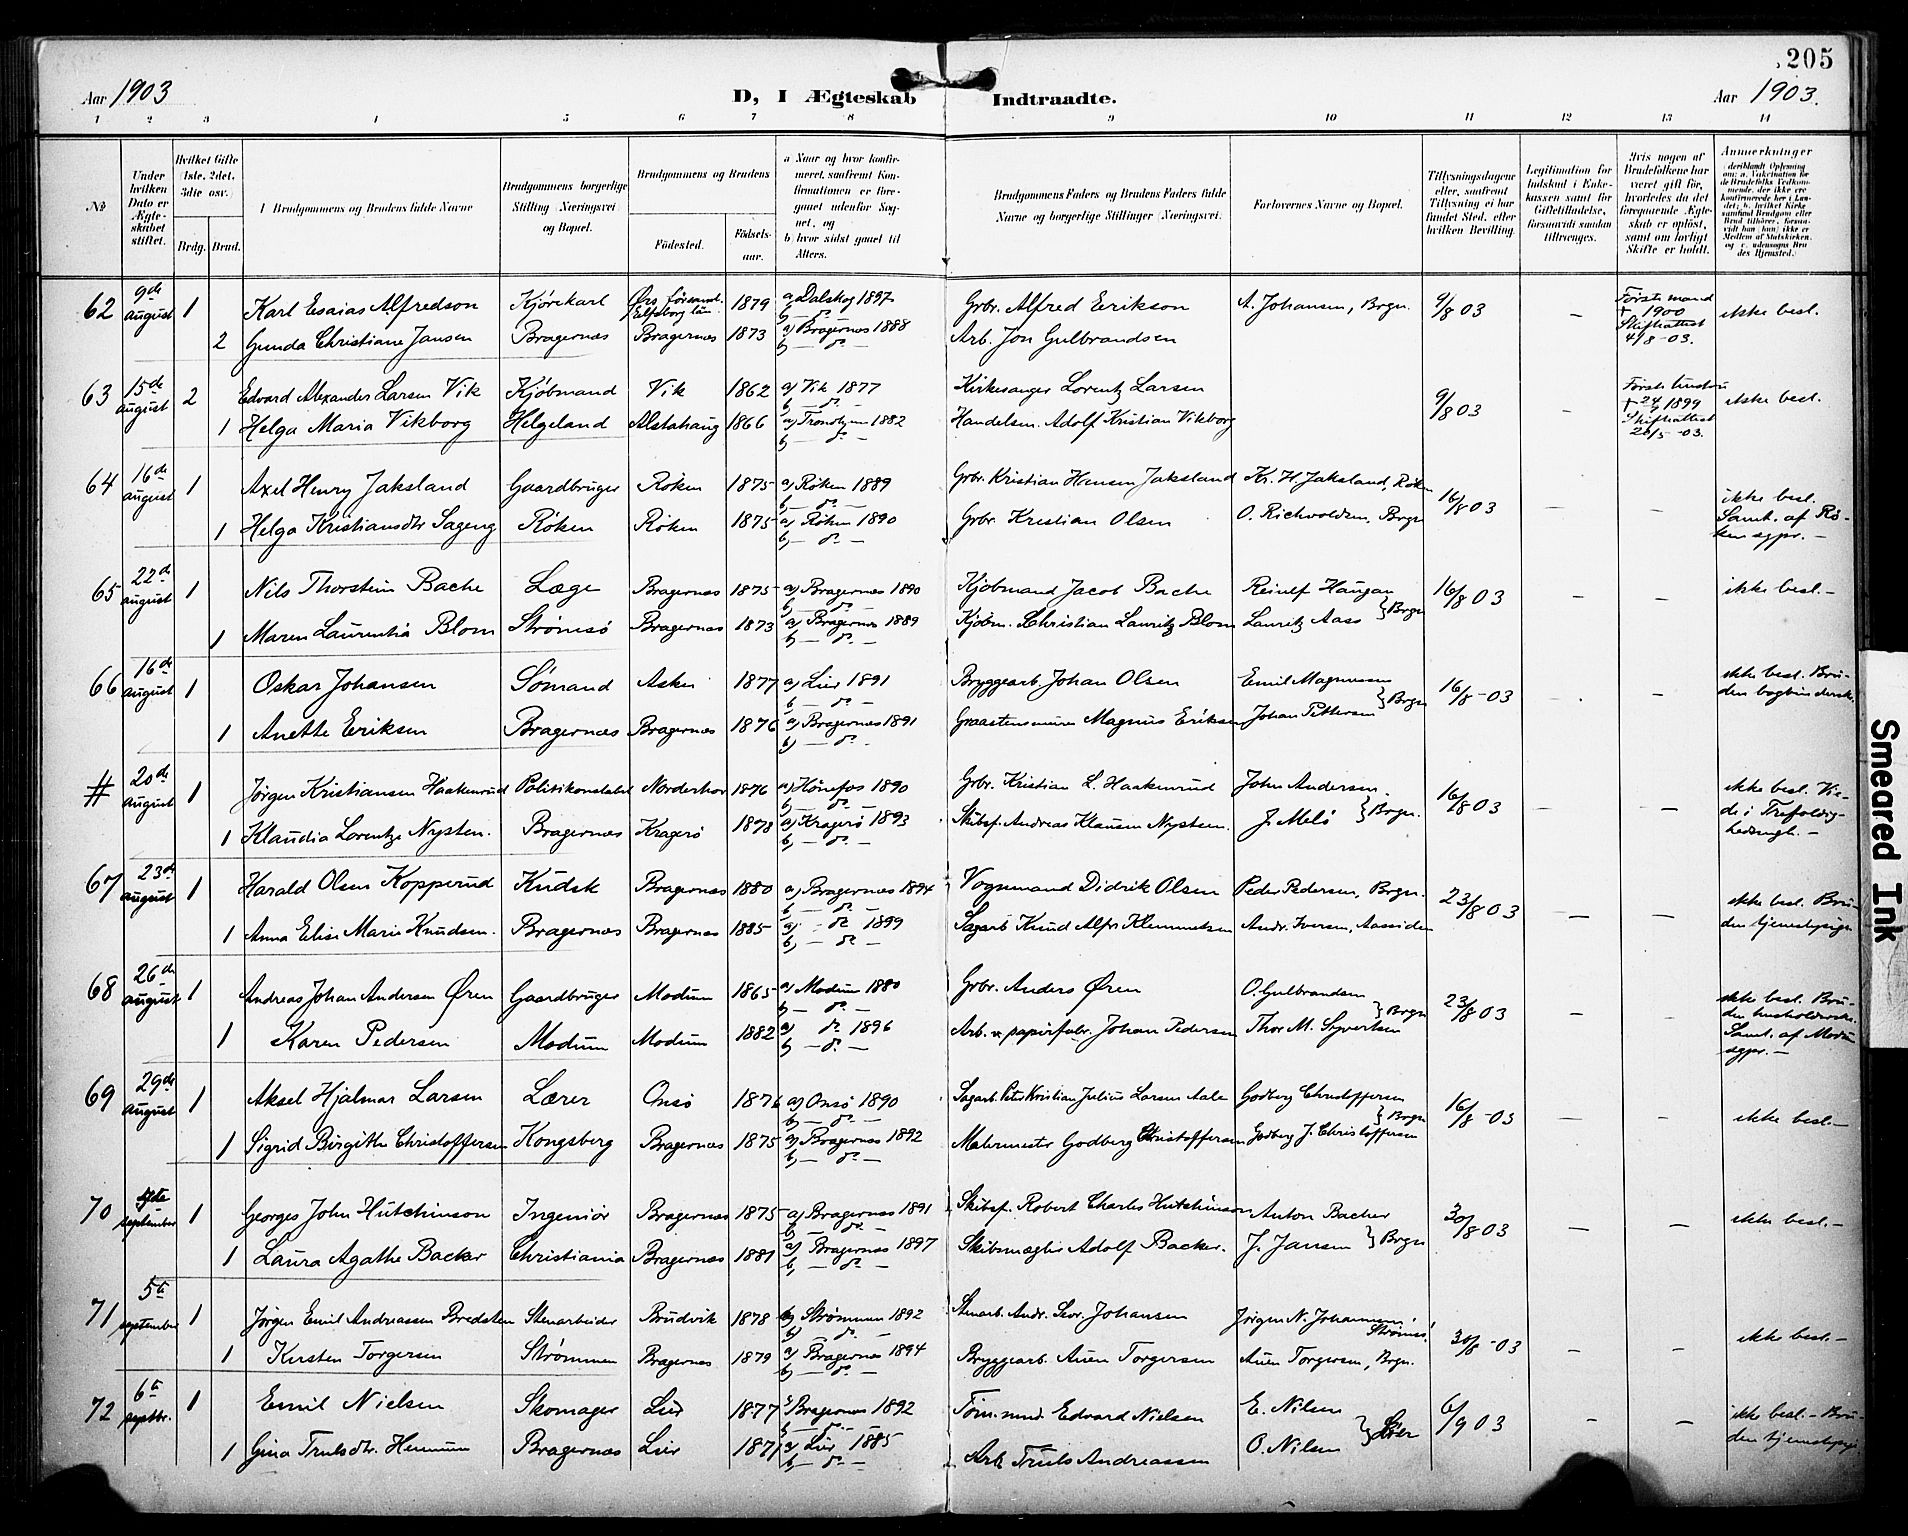 205
Aar 1903
D, I Ægteskab Indtraadte.
Aar 1903.
1 2 3 4 5 6 7 8 9 10 11 12 13 14
No.
Under hvilken Dato er Ægteskabet stiftet.
Hvilket Gifte (1ste, 2det, 3die osv.)
Brdg. Brud.
Brudgommens og Brudens fulde Navne
Brudgommens borgerlige Stilling (Næringsvei) og Bopæl.
Brudgommens og Brudens
Fødested. Fødselsaar.
a Naar og hvor konfirmeret, samt om Konfirmationen er foregaaet udenfor Sognet, og
b hvor sidst gaaet til Alters.
Brudgommens Faders og Brudens Faders fulde Navne og borgerlige Stillinger (Næringsvei).
Forlovernes Navne og Bopæl.
Tillysningsdagene eller, saafremt Tillysning ei har fundet Sted, efter hvilken Bevilling.
Legitimation for Indskud i Enkekassen samt for Giftetilladelse, forsaavidt saadan tiltrænges.
Hvis nogen af Brudefolkene har været gift før, hvorledes da det foregaaende Ægteskab er opløst, samt om lovligt Skifte er holdt.
Anmerkninger
62 9de august 1 Karl Esaias Alfredson Kjørekarl 1879 a) Dalskog 1897 Grbr. Alfred Erikson A. Johansen, Brgn. 9/8 03 – Første mand † 1900 Skifteattest 4/8-03. ikke besl.
2 Gunda Christiane Jansen Bragernæs Bragernæs 1873 a) Bragernæs 1888 b) — do. — Arb. Jon Gulbrandsen
63 15de august 2 Edvard Alexander Larsen Vik Kjøbmand Vik 1862 a) Vik 1877 b) — do. — Kirkesanger Lorentz Larsen 9/8 03 – 1899 Skifteattest 26/5-03. ikke besl.
1 Helga Maria Vikborg Helgeland Alstahaug 1866 a) Trondhjem 1882 b) — do. — Handelsm. Adolf Kristian Vikborg
64 16de august 1 Axel Henry Jaksland Gaardbruger Røken 1875 a) Røken 1889 b) — do. — Grbr. Kristian Hansen Jaksland Kr. H. Jaksland, Røken 16/8 03 – – ikke besl. Samt. af Røken sgpr. –
1 Helga Kristiansdtr Sageng Røken Røken 1875 a) Røken 1890 b) — do. — Grbr. Kristian Olsen O. Richvoldsen, Brgn
65 22de august 1 Nils Thorstein Bache Læge Bragernæs 1875 a) Bragernæs 1890 b) — do. — Kjøbmand Jacob Bache Reiulf Haugan } Brgn 16/8 03 – – ikke besl. –
1 Maren Laurentia Blom Strømsø Bragernæs 1873 a) Bragernæs 1889 b) — do. — Kjøbm. Christian Lauritz Blom Lauritz Aass
66 16de august 1 Oskar Johansen Sømand Asker 1877 a) Lier 1891 b) — do. — Bryggearb. Johan Olsen Emil Magnussen } Brgn 16/8-03 – – ikke besl. Bruden bogbinderske.
1 Anette Eriksen Bragernæs Bragernæs 1876 a) Bragernæs 1891 b) — do. Graastensmurer Magnus Eriksen Johan Pettersen
# 20de august 1 Jørgen Kristiansen Haakenrud Politikonstabel Norderhov 1876 a) Hønefos 1890 b) — do. — Grbr. Kristian L. Haakenrud John Andersen } Brgn. 16/8 03 – – ikke besl. Viede i Trefoldighedsmgh. –
1 Klaudia Lorentze Nysten. Bragernæs Kragerø 1878 a) Kragerø 1893 b) — do. — Skibsf. Andreas Klausen Nysten. J. Melø
67 23de august 1 Harald Olsen Kopperud Kudsk Bragernæs 1880 a) Bragernæs 1894 b) — do. — Vognmand Didrik Olsen Peder Pedersen, Brgn. 23/8 03 – – ikke besl. Bruden tjenestepige
1 Anna Elise Marie Knudsen. Bragernæs Bragernæs 1885 a) — do. 1899 b) — do. — Sagarb Knud Alfr. Klemmetsen Andr. Iversen, Aassiden
68 26de august 1 Andreas Johan Andersen Øren Gaardbruger Modum 1865 a) Modum 1880 b) — do. — Grbr. Anders Øren O. Gulbrandsen } Brgn 23/8 03 – – ikke besl. Bruden husholderske. Samt. af Modum sgpr. –
1 Karen Pedersen Modum Modum 1882 a) do. 1896 b) — do. — Arb. v. papirfabr. Johan Pedersen Thor M. Syvertsen
69 29de august 1 Aksel Hjalmar Larsen Lærer Onsø 1876 a) Onsø 1890 b) — do. — Sagarb. Peter Kristian Julius Larsen Aale Godberg Christoffersen } Brgn 16/8-03 – – ikke besl. –
1 Sigrid Birgithe Christoffersen Kongsberg Bragernæs 1875 a) Bragernæs 1892 b) — do. — Malermester Godberg Christoffersen Godberg J. Christoffersen
70 september 1 Georges John Hutchinson Ingeniør Bragernæs 1875 a) Bragernæs 1891 b) — do. — Skibsf. Robert Charles Hutchinson Anton Backer } Brgn 30/8 03 – – ikke besl. –
1 Laura Agathe Backer Christiania Bragernæs 1881 a) Bragernæs 1897 b) — do. — Skibsmægler Adolf Backer. J. Jansen
71 5te september 1 Jørgen Emil Andreassen Bredsten Stenarbeider Brudvik 1878 a) Strømmen 1892 b) do. — Stenarb. Andr. Sevr. Johansen Jørgen N. Johannesen Strømsø 30/8-03 – – ikke besl. –
1 Kirsten Torgersen Strømmen Bragernæs 1879 a) Bragernæs 1894 b) — do. — Bryggearb. Auen Torgersen Auen Torgersen, Brgn.
72 6te septbr. 1 Emil Nielsen Skomager Lier 1877 a) Bragernæs 1892 b) — do. — Tømmermd. Edvard Nielsen E. Nilsen } Lier 6/9 03 – – ikke besl. – Bruden tjenestepige
1 Gina Trulsdtr. Hennum Bragernæs Lier 1871 a) Lier 1885 b) — do. — Arb. Truls Andreassen O. Nilsen
Smeared Ink